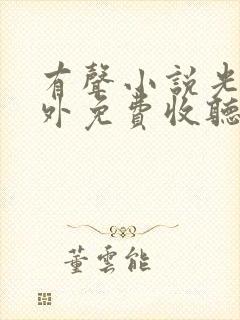 有聲小說光
外免費收聽
董雲能